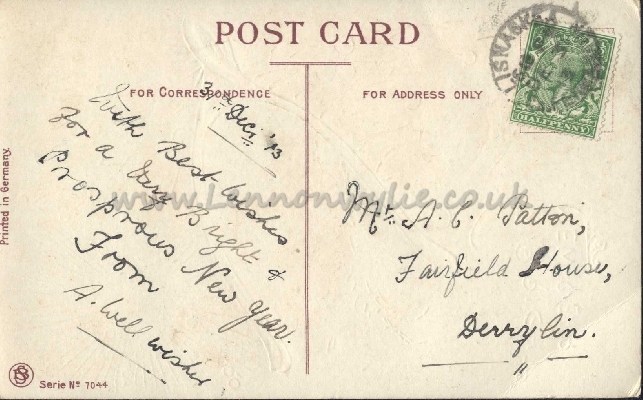 POST CARD
FOR CORRESPONDENCE
FOR ADDRESS ONLY
Printed in Germany.
31st Dec. '13
With Best Wishes
For a Very Bright &
Prosprous New Year.
From
A Well wisher
Mr. A. C. Patton,
Fairfield House,
Derrylin.
LISNASKEA
HALFPENNY
www.Lennonwylie.co.uk
Serie No 7044